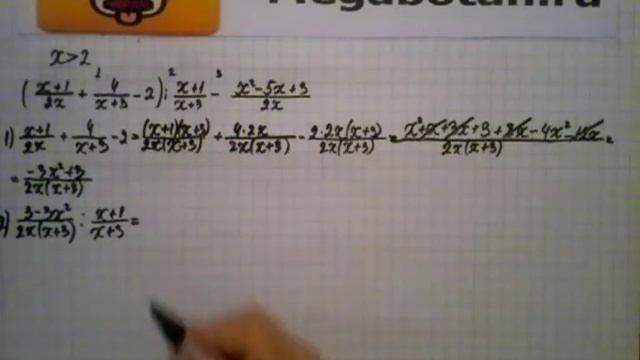 Megabotan.ru
x>2
(x+1/2x + 4/x+3 - 2) : x+1/x+3 - x²-5x+3/2x
1 2 3
1) x+1/2x + 4/x+3 - 2 = (x+1)(x+3)/2x(x+3) + 4·2x/2x(x+3) - 2·2x(x+3)/2x(x+3) = x²+x+3x+3+8x-4x²-12x/2x(x+3) =
= -3x²+3/2x(x+3)
2) 3-3x²/2x(x+3) : x+1/x+3 =